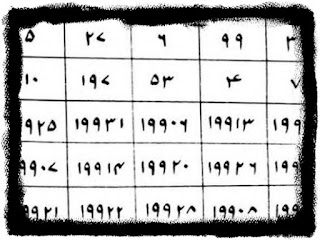 ۵ ۲۷ ۶ ۹۹ ۳
۱۰ ۱۹۷ ۵۳ ۴ ۷
۹۲۵ ۱۹۹۳۱ ۱۹۹۰۶ ۱۹۹۱۳ ۱۹۹
۹۹۰۷ ۱۹۹۱۴ ۱۹۹۲۰ ۱۹۹۲۶ ۱۹۹
۹۹۲۱ ۱۹۹۲۲ ۱۹۹۲۸ ۱۹۹۰۸ ۱۹۹